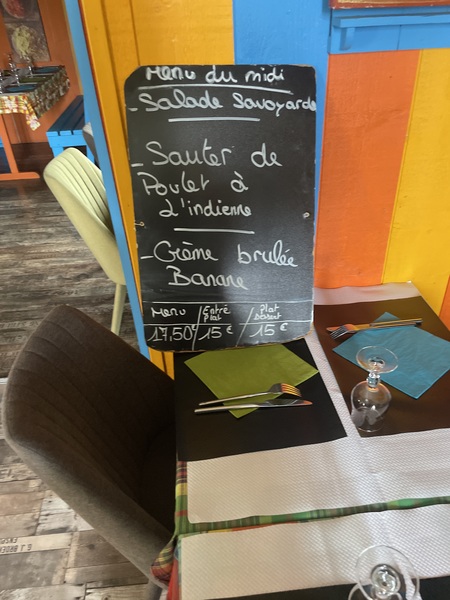 Menu du midi
- Salade Savoyarde
- Sauter de
Poulet à
L'indienne
- Crème brulée
Banane
Menu / Entré plat / Plat dessert
17,50€ / 15€ / 15€